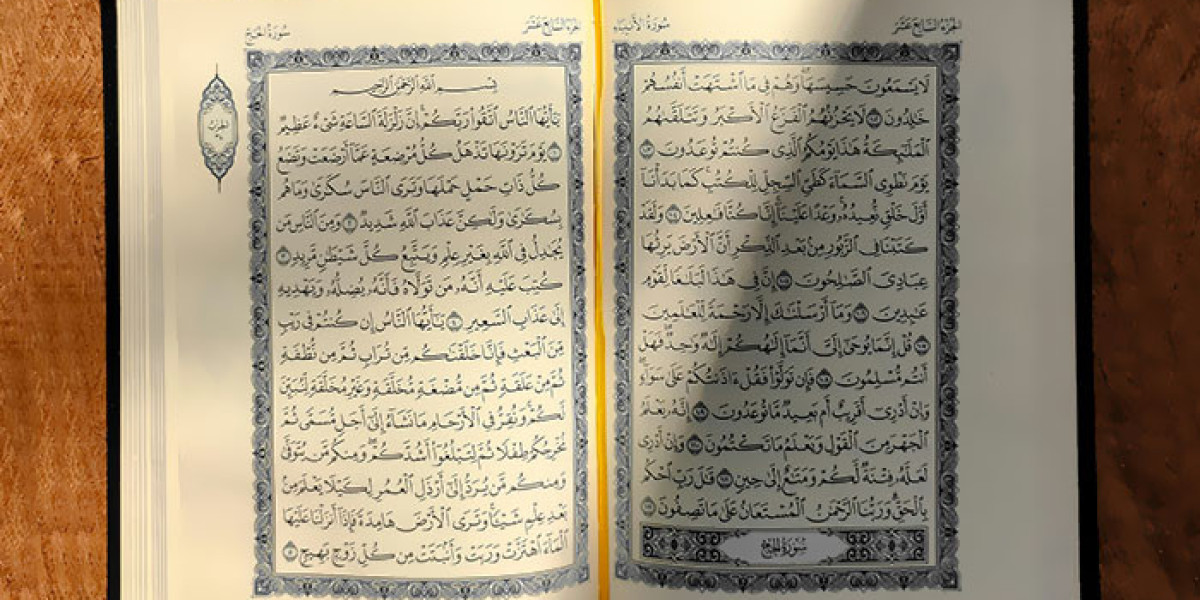 الجزء السابع عشر
سورة الأنبياء
لَا يَسْمَعُونَ حَسِيسَهَا ۖ وَهُمْ فِي مَا اشْتَهَتْ أَنفُسُهُمْ
خَالِدُونَ ١٠٢ لَا يَحْزُنُهُمُ الْفَزَعُ الْأَكْبَرُ وَتَتَلَقَّاهُمُ
الْمَلَائِكَةُ هَٰذَا يَوْمُكُمُ الَّذِي كُنتُمْ تُوعَدُونَ ١٠٣
يَوْمَ نَطْوِي السَّمَاءَ كَطَيِّ السِّجِلِّ لِلْكُتُبِ ۚ كَمَا بَدَأْنَا
أَوَّلَ خَلْقٍ نُّعِيدُهُ ۚ وَعْدًا عَلَيْنَا ۚ إِنَّا كُنَّا فَاعِلِينَ ١٠٤ وَلَقَدْ
كَتَبْنَا فِي الزَّبُورِ مِن بَعْدِ الذِّكْرِ أَنَّ الْأَرْضَ يَرِثُهَا
عِبَادِيَ الصَّالِحُونَ ١٠٥ إِنَّ فِي هَٰذَا لَبَلَاغًا لِّقَوْمٍ
عَابِدِينَ ١٠٦ وَمَا أَرْسَلْنَاكَ إِلَّا رَحْمَةً لِّلْعَالَمِينَ
١٠٧ قُلْ إِنَّمَا يُوحَىٰ إِلَيَّ أَنَّمَا إِلَٰهُكُمْ إِلَٰهٌ وَاحِدٌ ۖ فَهَلْ
أَنتُم مُّسْلِمُونَ ١٠٨ فَإِن تَوَلَّوْا فَقُلْ آذَنتُكُمْ عَلَىٰ سَوَاءٍ ۖ
وَإِنْ أَدْرِي أَقَرِيبٌ أَم بَعِيدٌ مَّا تُوعَدُونَ ١٠٩ إِنَّهُ يَعْلَمُ
الْجَهْرَ مِنَ الْقَوْلِ وَيَعْلَمُ مَا تَكْتُمُونَ ١١٠ وَإِنْ أَدْرِي
لَعَلَّهُ فِتْنَةٌ لَّكُمْ وَمَتَاعٌ إِلَىٰ حِينٍ ١١١ قَالَ رَبِّ احْكُم
بِالْحَقِّ ۗ وَرَبُّنَا الرَّحْمَٰنُ الْمُسْتَعَانُ عَلَىٰ مَا تَصِفُونَ ١١٢
سورة الحج
الجزء السابع عشر
سورة الحج
بِسْمِ اللَّهِ الرَّحْمَٰنِ الرَّحِيمِ
يَا أَيُّهَا النَّاسُ اتَّقُوا رَبَّكُمْ ۚ إِنَّ زَلْزَلَةَ السَّاعَةِ شَيْءٌ عَظِيمٌ
١ يَوْمَ تَرَوْنَهَا تَذْهَلُ كُلُّ مُرْضِعَةٍ عَمَّا أَرْضَعَتْ وَتَضَعُ
كُلُّ ذَاتِ حَمْلٍ حَمْلَهَا وَتَرَى النَّاسَ سُكَارَىٰ وَمَا هُم
بِسُكَارَىٰ وَلَٰكِنَّ عَذَابَ اللَّهِ شَدِيدٌ ٢ وَمِنَ النَّاسِ مَن
يُجَادِلُ فِي اللَّهِ بِغَيْرِ عِلْمٍ وَيَتَّبِعُ كُلَّ شَيْطَانٍ مَّرِيدٍ ٣
كُتِبَ عَلَيْهِ أَنَّهُ مَن تَوَلَّاهُ فَأَنَّهُ يُضِلُّهُ وَيَهْدِيهِ
إِلَىٰ عَذَابِ السَّعِيرِ ٤ يَا أَيُّهَا النَّاسُ إِن كُنتُمْ فِي رَيْبٍ
مِّنَ الْبَعْثِ فَإِنَّا خَلَقْنَاكُم مِّن تُرَابٍ ثُمَّ مِن نُّطْفَةٍ
ثُمَّ مِنْ عَلَقَةٍ ثُمَّ مِن مُّضْغَةٍ مُّخَلَّقَةٍ وَغَيْرِ مُخَلَّقَةٍ لِّنُبَيِّنَ
لَكُمْ ۚ وَنُقِرُّ فِي الْأَرْحَامِ مَا نَشَاءُ إِلَىٰ أَجَلٍ مُّسَمًّى ثُمَّ
نُخْرِجُكُمْ طِفْلًا ثُمَّ لِتَبْلُغُوا أَشُدَّكُمْ ۖ وَمِنكُم مَّن يُتَوَفَّىٰ
وَمِنكُم مَّن يُرَدُّ إِلَىٰ أَرْذَلِ الْعُمُرِ لِكَيْلَا يَعْلَمَ مِن
بَعْدِ عِلْمٍ شَيْئًا ۚ وَتَرَى الْأَرْضَ هَامِدَةً فَإِذَا أَنزَلْنَا عَلَيْهَا
الْمَاءَ اهْتَزَّتْ وَرَبَتْ وَأَنبَتَتْ مِن كُلِّ زَوْجٍ بَهِيجٍ ٥